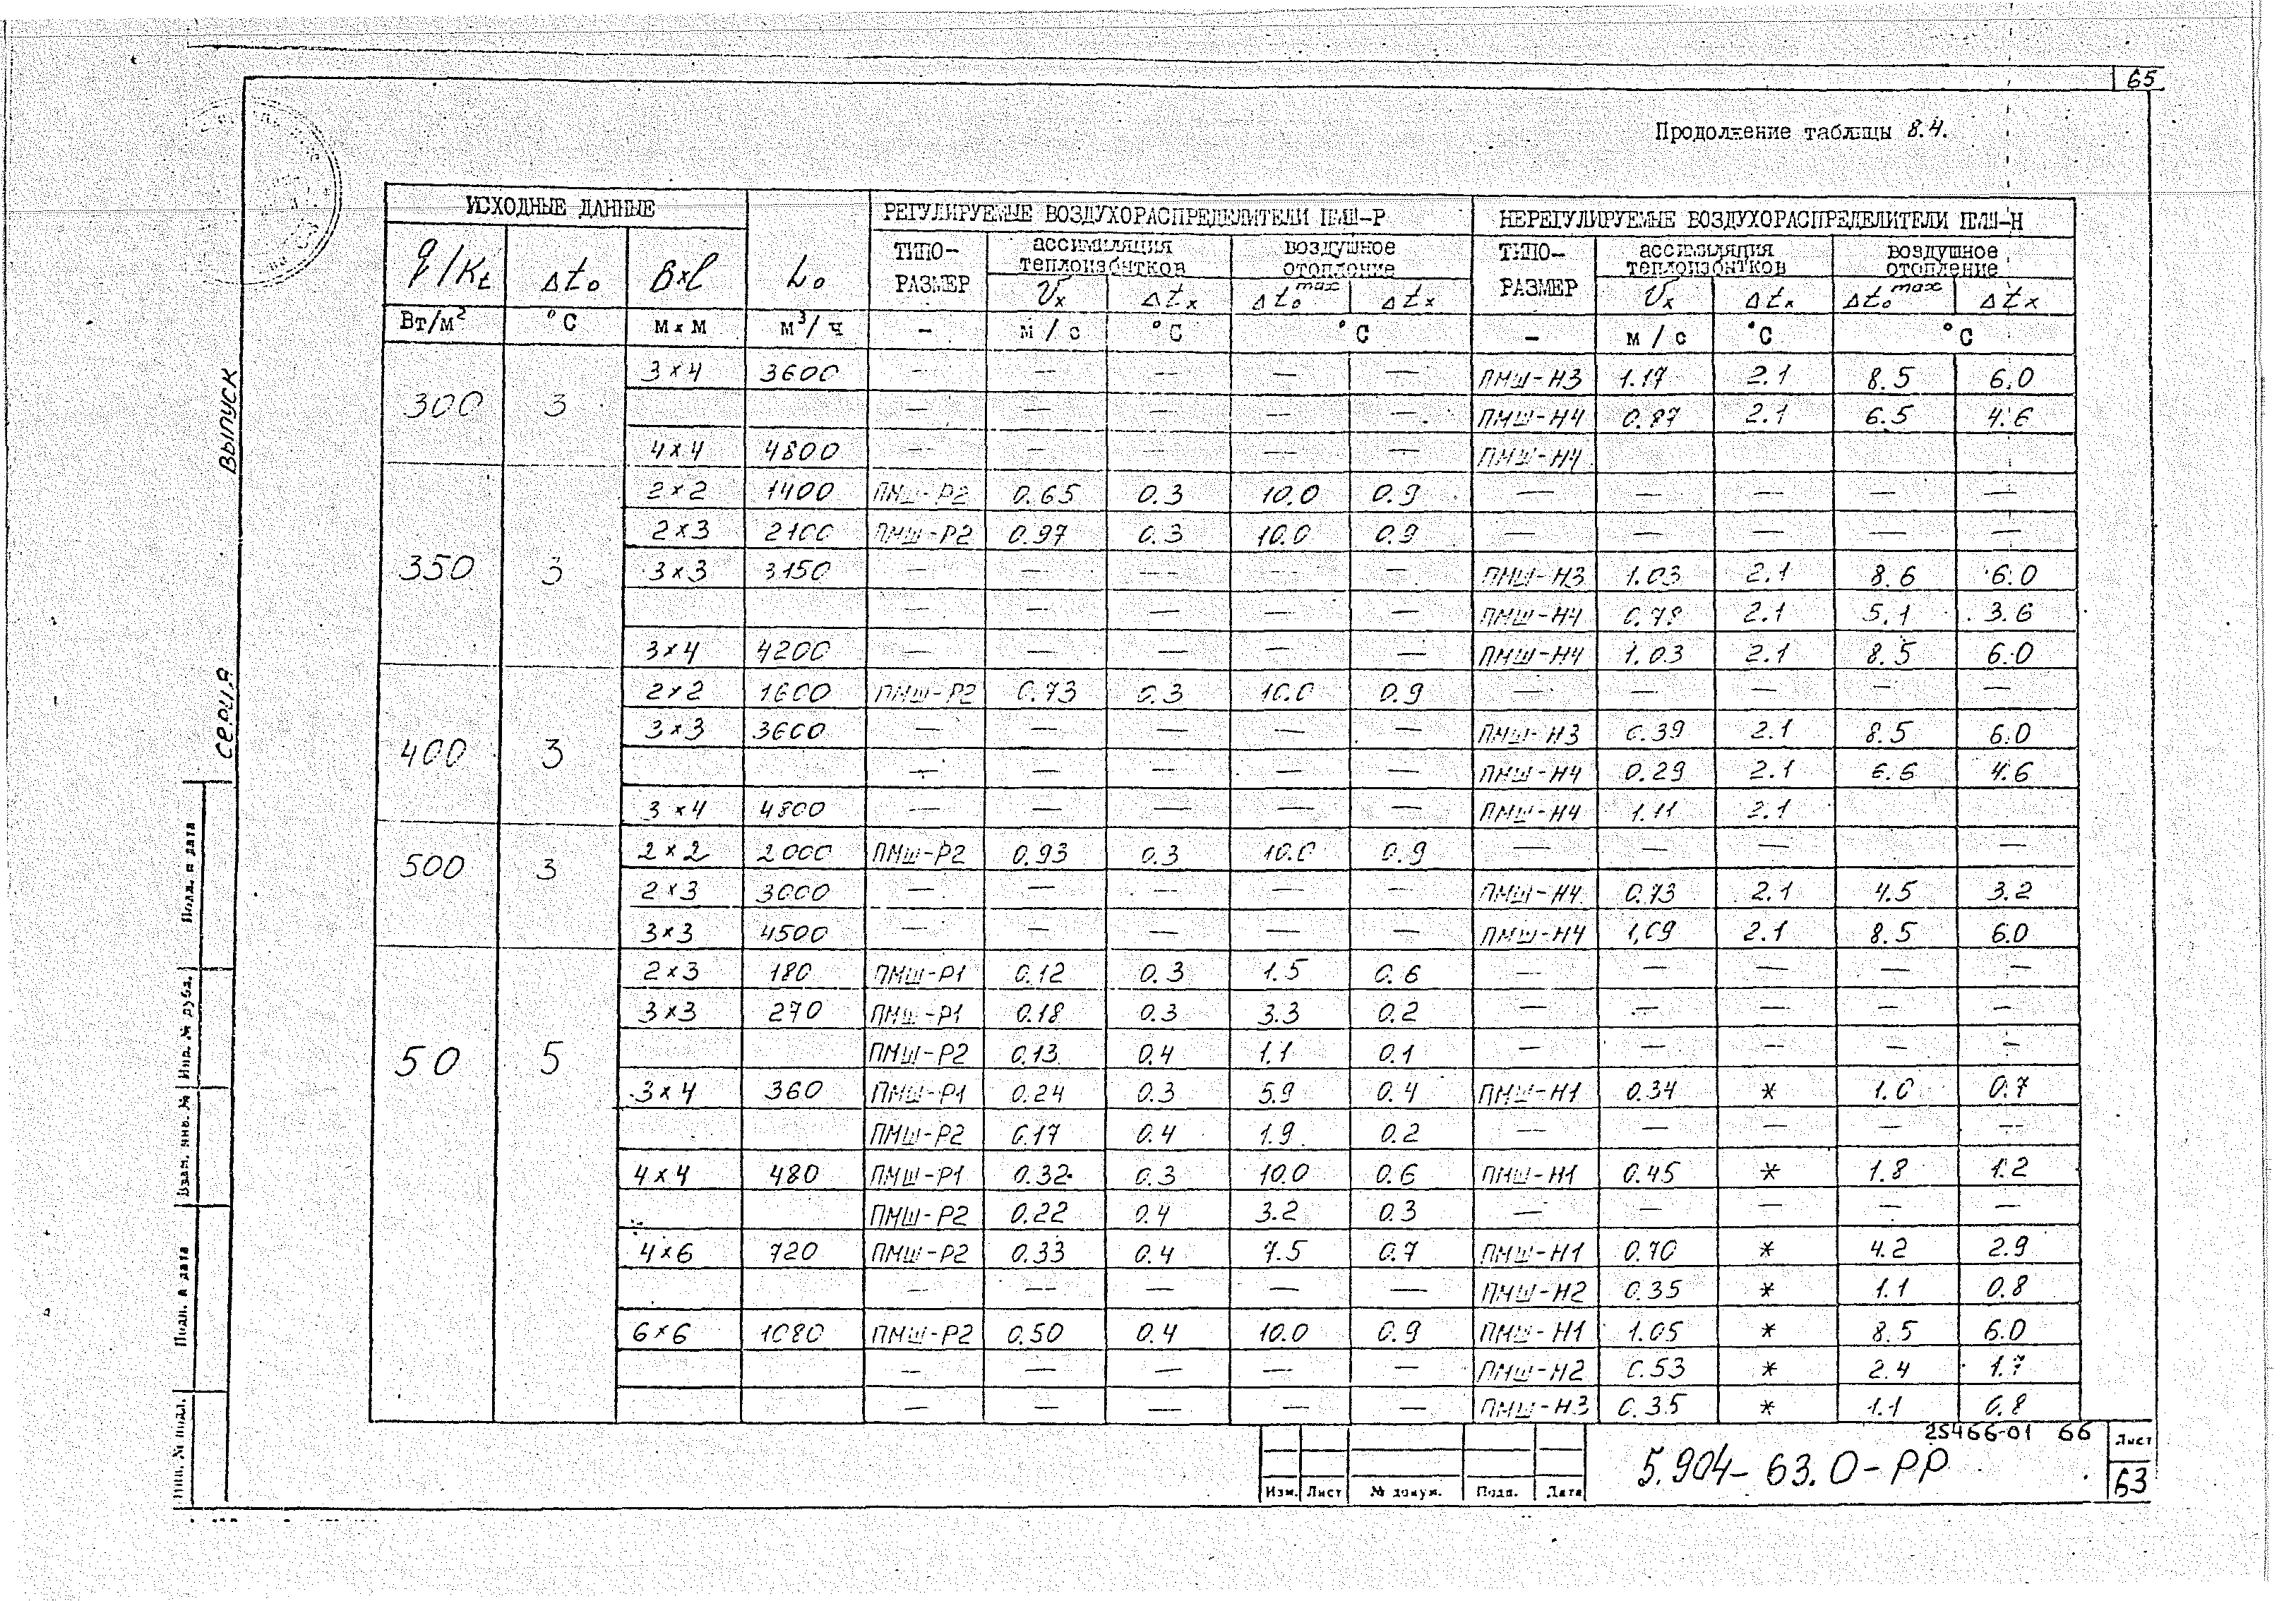 65
Продолжение таблицы 8.4.
ИСХОДНЫЕ ДАННЫЕ
РЕГУЛИРУЕМЫЕ ВОЗДУХОРАСПРЕДЕЛИТЕЛИ ПМШ-Р
НЕРЕГУЛИРУЕМЫЕ ВОЗДУХОРАСПРЕДЕЛИТЕЛИ ПМШ-Н
q/Kt Δto B×l Lo
ТИПО-РАЗМЕР ассимиляция теплоизбытков воздушное отопление
ТИПО-РАЗМЕР ассимиляция теплоизбытков воздушное отопление
Vx Δtx Δto max Δtx Vx Δtx Δto max Δtx
Вт/м² °С м×м м³/ч – м/с °С °С – м/с °С °С
300 3 3×4 3600 — — — — — ПМШ-Н3 1.17 2.1 8.5 6.0
— — — — — ПМШ-Н4 0.87 2.1 6.5 4.6
4×4 4800 — — — — — ПМШ-Н4
350 3 2×2 1400 ПМШ-Р2 0.65 0.3 10.0 0.9 — — — — —
2×3 2100 ПМШ-Р2 0.97 0.3 10.0 0.9 — — — — —
3×3 3150 — — — — — ПМШ-Н3 1.03 2.1 8.6 6.0
— — — — — ПМШ-Н4 0.78 2.1 5.1 3.6
3×4 4200 — — — — — ПМШ-Н4 1.03 2.1 8.5 6.0
400 3 2×2 1600 ПМШ-Р2 0.73 0.3 10.0 0.9 — — — — —
3×3 3600 — — — — — ПМШ-Н3 0.39 2.1 8.5 6.0
— — — — — ПМШ-Н4 0.29 2.1 6.6 4.6
3×4 4800 — — — — — ПМШ-Н4 1.11 2.1
500 3 2×2 2000 ПМШ-Р2 0.93 0.3 10.0 0.9 — — — —
2×3 3000 — — — — — ПМШ-Н4 0.73 2.1 4.5 3.2
3×3 4500 — — — — — ПМШ-Н4 1,09 2.1 8.5 6.0
50 5 2×3 180 ПМШ-Р1 0.12 0.3 1.5 0.6 — — — — —
3×3 270 ПМШ-Р1 0.18 0.3 3.3 0.2 — — — — —
ПМШ-Р2 0.13 0.4 1.1 0.1 — — — — —
3×4 360 ПМШ-Р1 0.24 0.3 5.9 0.4 ПМШ-Н1 0.34 * 1.0 0.7
ПМШ-Р2 0.17 0.4 1.9 0.2 — — — — —
4×4 480 ПМШ-Р1 0.32 0.3 10.0 0.6 ПМШ-Н1 0.45 * 1.8 1.2
ПМШ-Р2 0.22 0.4 3.2 0.3 — — — — —
4×6 720 ПМШ-Р2 0.33 0.4 7.5 0.7 ПМШ-Н1 0.70 * 4.2 2.9
— — — — — ПМШ-Н2 0.35 * 1.1 0.8
6×6 1080 ПМШ-Р2 0.50 0.4 10.0 0.9 ПМШ-Н1 1.05 * 8.5 6.0
— — — — — ПМШ-Н2 0.53 * 2.4 1.7
— — — — — ПМШ-Н3 0.35 * 1.1 0.8
25466-01 66
5.904-63.0-РР
Лист
63
Изм. Лист № докум. Подп. Дата
ВЫПУСК
СЕРИЯ
Подп. и дата
Инв. № дубл.
Взам. инв. №
Подп. и дата
Инв. № подл.